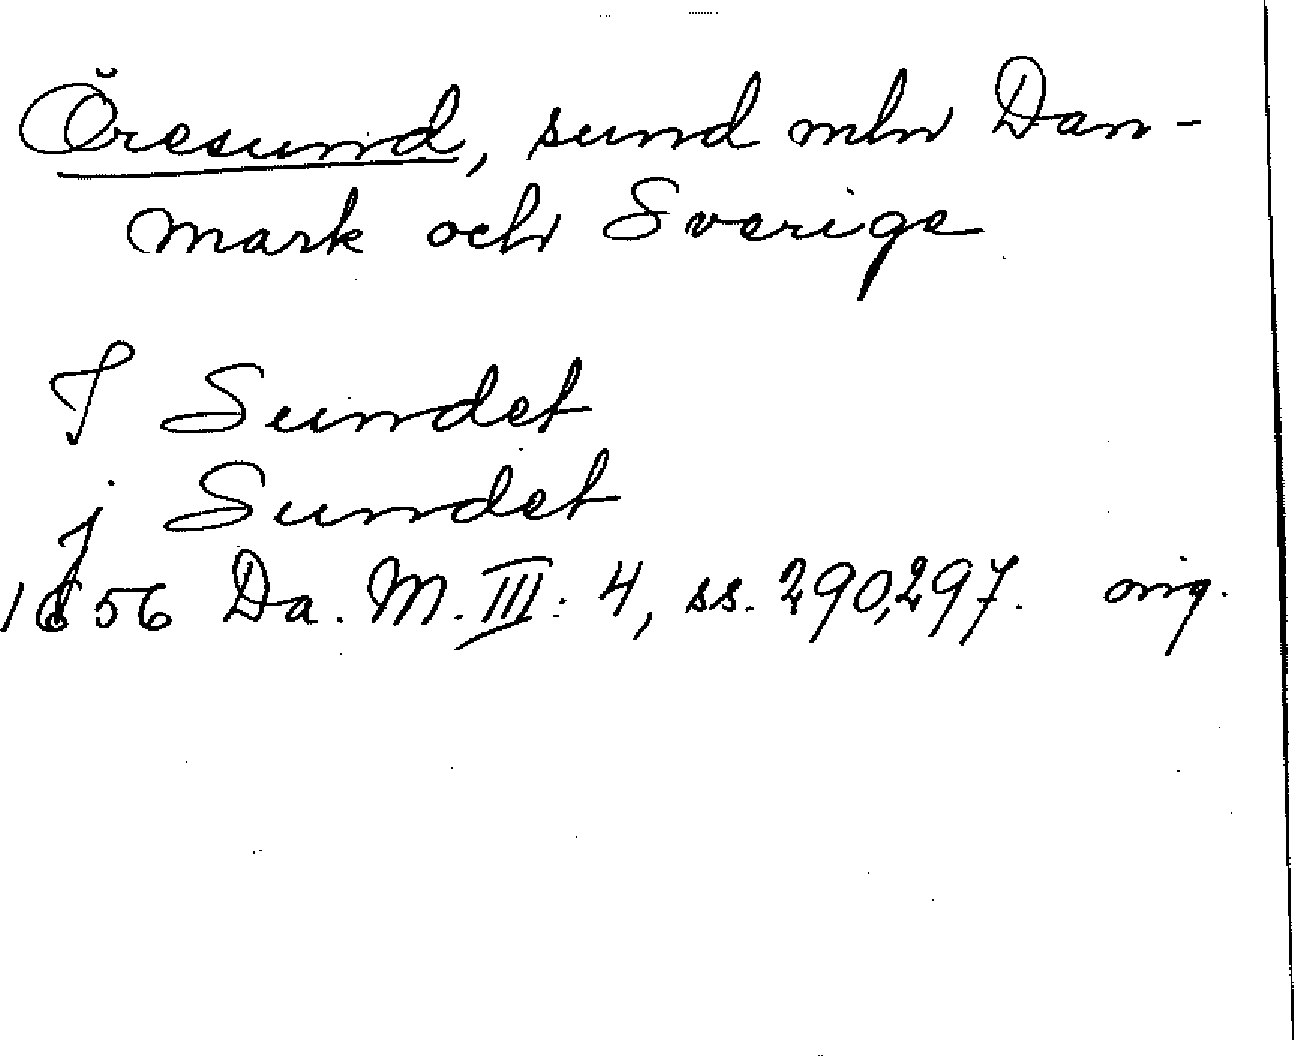 Öresund, sund mln Dan-
mark och Sverige
I Sundet
j Sundet
1656 Da. M. III: 4, ss. 290, 297. orig.